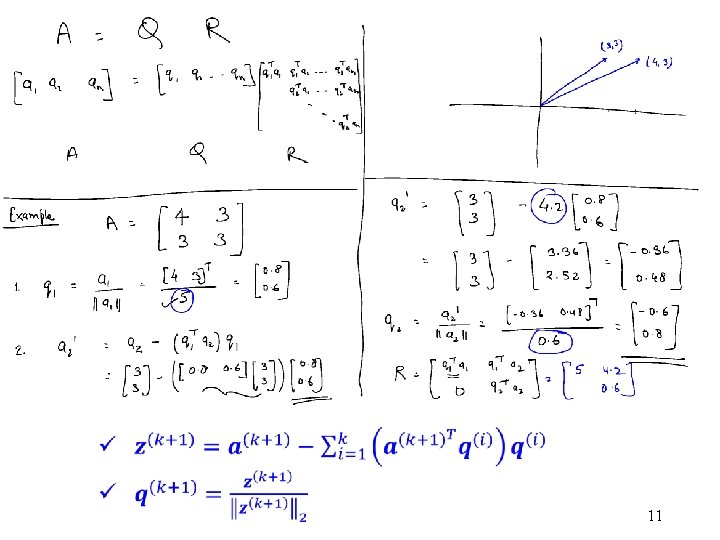 A = Q R
[a₁ a₂ aₙ] = [q₁ q₂ ... qₙ] [q₁ᵀa₁ q₁ᵀa₂ ... q₁ᵀaₙ
q₂ᵀa₂ ... q₂ᵀaₙ
...
A Q R
(3,3)
(4,3)
Example A = [4 3
3 3]
1. q₁ = a₁ / ||a₁|| = [4 3]ᵀ / 5 = [0.8
0.6]
2. a₂' = a₂ - (q₁ᵀ a₂) q₁
= [3
3] - ([0.8 0.6] [3
3]) [0.8
0.6]
q₂' = [3
3] - 4.2 [0.8
0.6]
= [3
3] - [3.36
2.52] = [-0.36
0.48]
q₂ = a₂' / ||a₂|| = [-0.36 0.48]ᵀ / 0.6 = [-0.6
0.8]
R = [q₁ᵀa₁ q₁ᵀa₂
0 q₂ᵀa₂] = [5 4.2
0.6]
✓ z^(k+1) = a^(k+1) − Σ_{i=1}^{k} (a^(k+1)ᵀ q^(i)) q^(i)
✓ q^(k+1) = z^(k+1) / ‖z^(k+1)‖₂
11